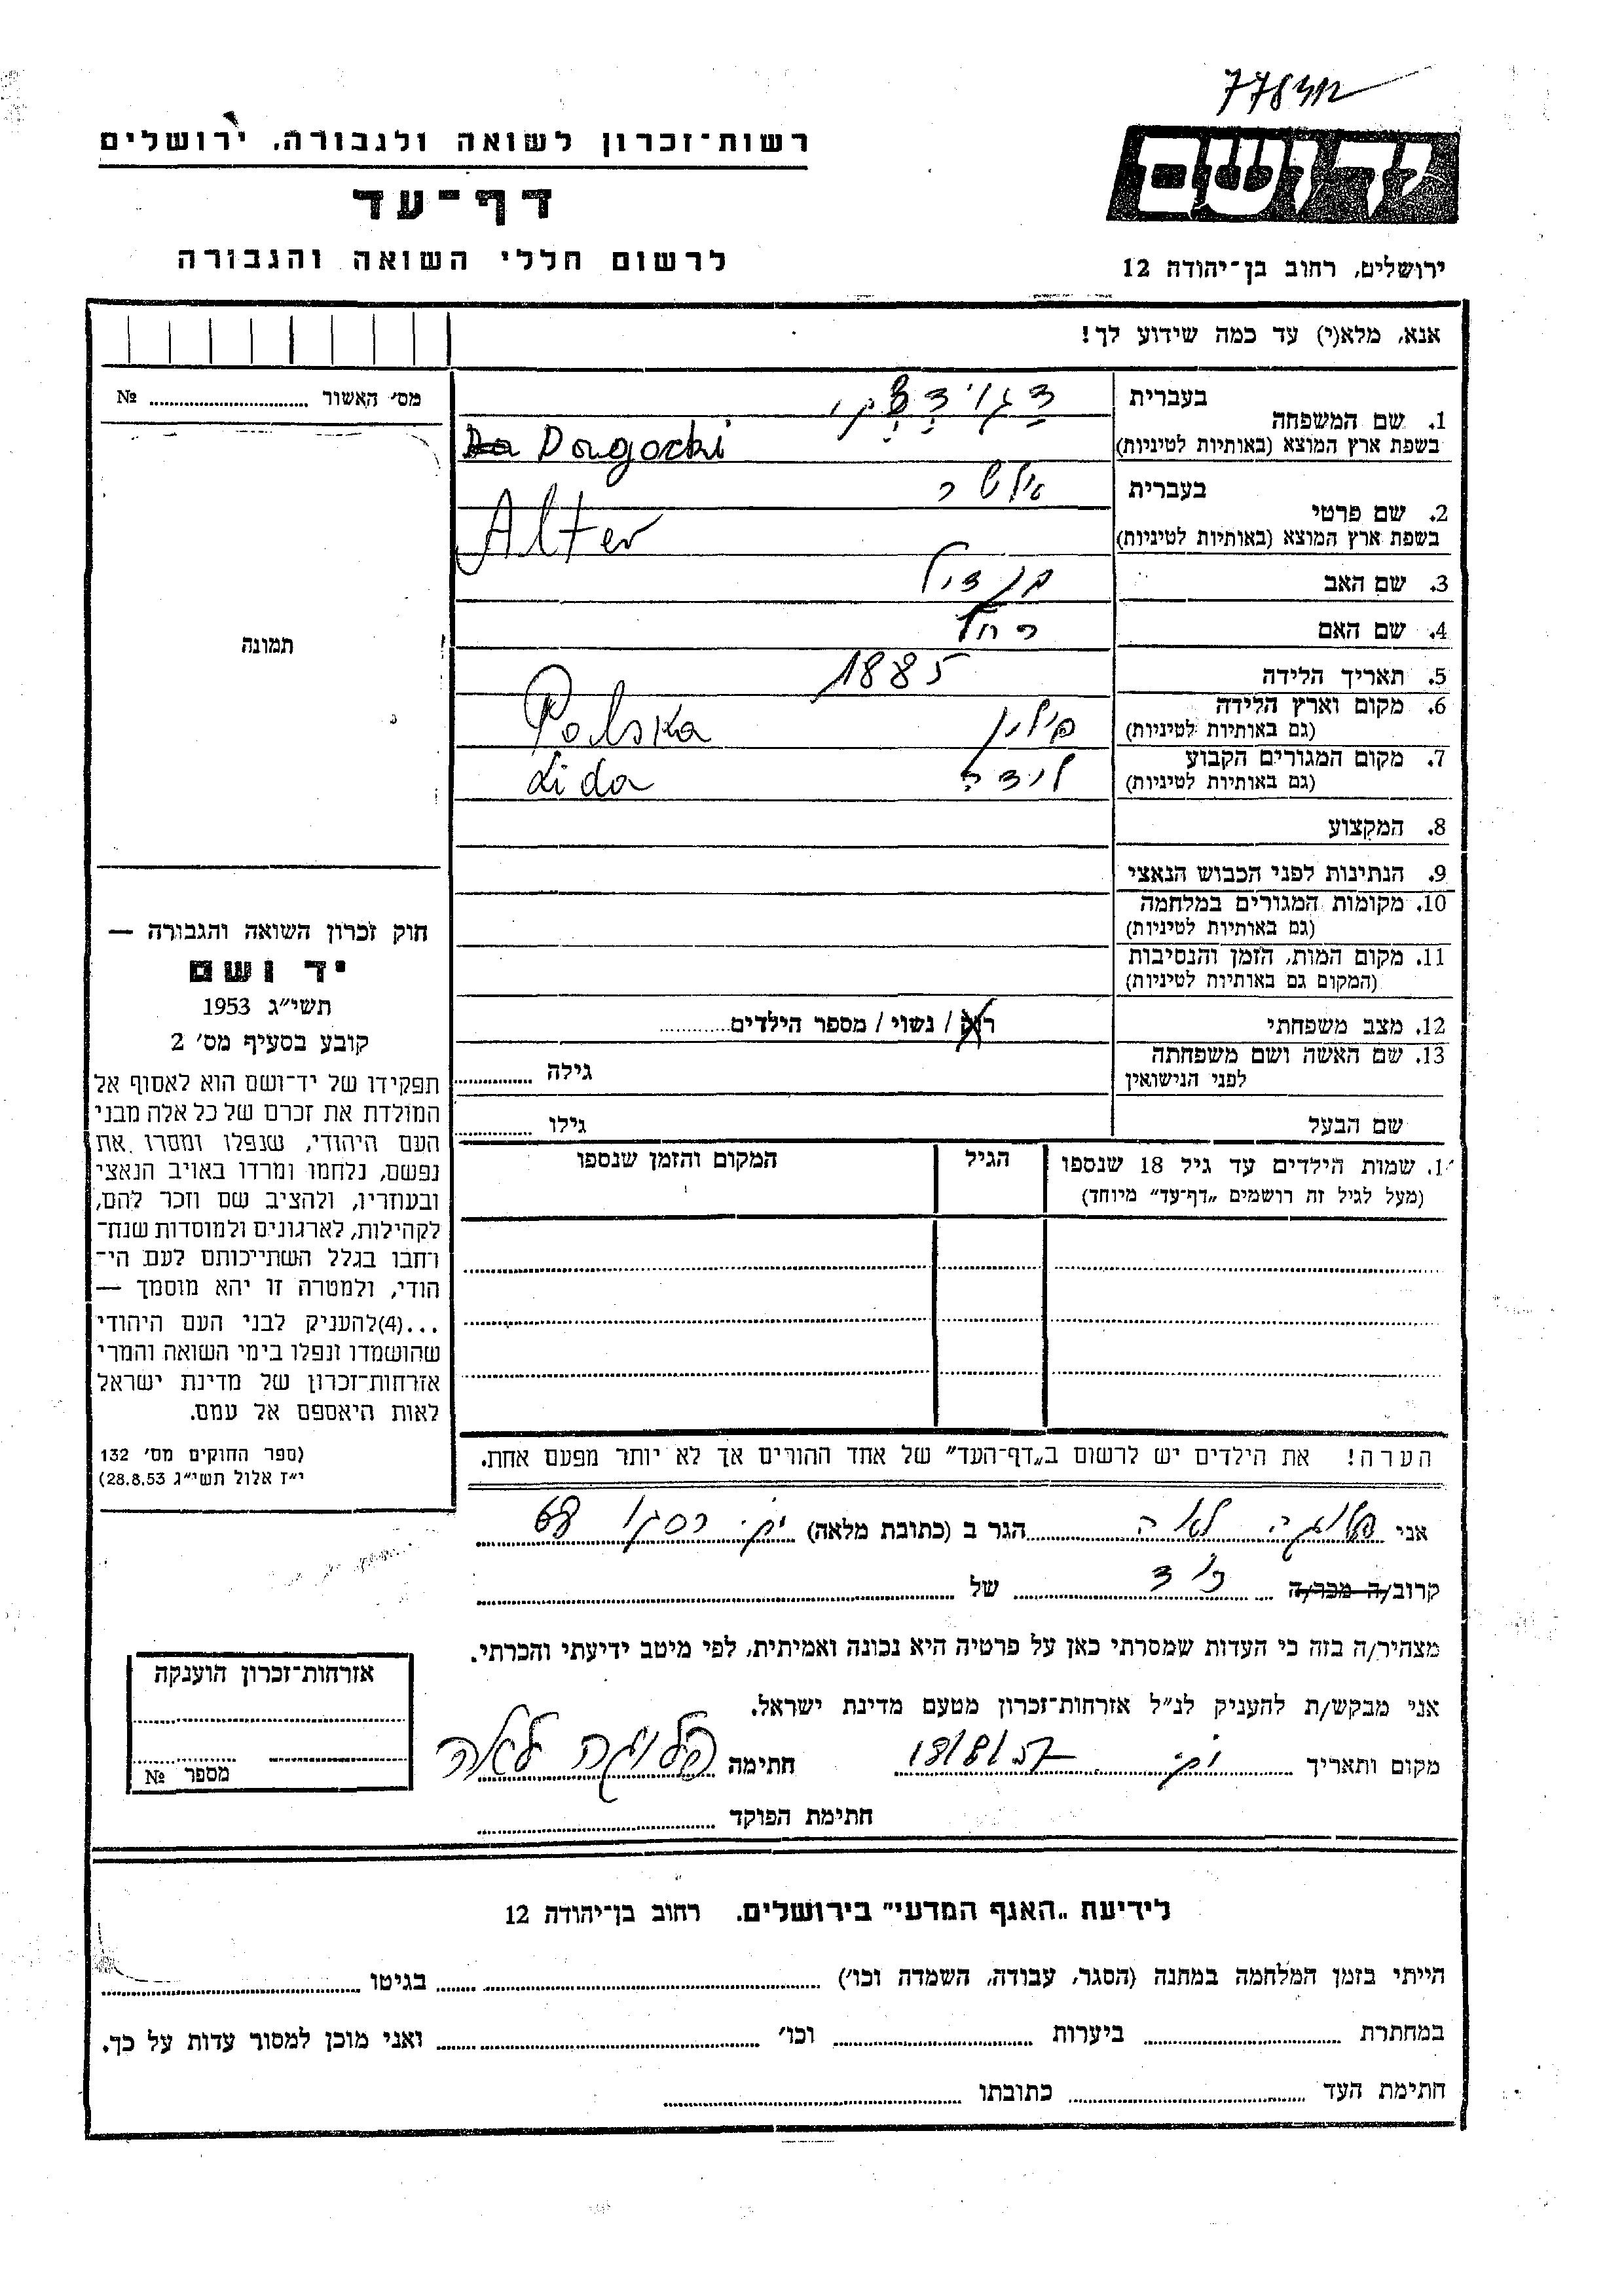 רשות־זכרון לשואה ולגבורה, ירושלים
דף־עד
לרשום חללי השואה והגבורה
יד ושם
ירושלים, רחוב בן־יהודה 12
אנא, מלא(י) עד כמה שידוע לך!
מס׳ האשור № 
תמונה
1. שם המשפחה
בעברית
בשפת ארץ המוצא (באותיות לטיניות) Dagocki
2. שם פרטי
בעברית אלטר
בשפת ארץ המוצא (באותיות לטיניות) Alter
3. שם האב
4. שם האם רחל
5. תאריך הלידה 1885
6. מקום וארץ הלידה פולין Polska
(גם באותיות לטיניות)
7. מקום המגורים הקבוע לידה Lida
(גם באותיות לטיניות)
8. המקצוע
9. הנתינות לפני הכבוש הנאצי
10. מקומות המגורים במלחמה
(גם באותיות לטיניות)
11. מקום המות, הזמן והנסיבות
(המקום גם באותיות לטיניות)
12. מצב משפחתי רוק / נשוי / מספר הילדים
13. שם האשה ושם משפחתה
לפני הנישואין גילה
שם הבעל גילו
1. שמות הילדים עד גיל 18 שנספו הגיל המקום והזמן שנספו
(מעל לגיל זה רושמים „דף־עד״ מיוחד)
הערה! את הילדים יש לרשום ב„דף־העד״ של אחד ההורים אך לא יותר מפעם אחת.
חוק זכרון השואה והגבורה —
יד ושם
תשי״ג 1953
קובע בסעיף מס׳ 2
תפקידו של יד־ושם הוא לאסוף אל
המולדת את זכרם של כל אלה מבני
העם היהודי, שנפלו ומסרו את
נפשם, נלחמו ומרדו באויב הנאצי
ובעוזריו, ולהציב שם וזכר להם,
לקהילות, לארגונים ולמוסדות שנח־
רבו בגלל השתייכותם לעם הי־
הודי, ולמטרה זו יהא מוסמך —
...(4)להעניק לבני העם היהודי
שהושמדו ונפלו בימי השואה והמרי
אזרחות־זכרון של מדינת ישראל
לאות היאספם אל עמם.
(ספר החוקים מס׳ 132
י״ז אלול תשי״ג 28.8.53)
אני לאה הגר ב (כתובת מלאה)
קרוב/ה מכר/ה של
מצהיר/ה בזה כי העדות שמסרתי כאן על פרטיה היא נכונה ואמיתית, לפי מיטב ידיעתי והכרתי.
אני מבקש/ת להעניק לנ״ל אזרחות־זכרון מטעם מדינת ישראל.
מקום ותאריך חתימה לאה
חתימת הפוקד
אזרחות־זכרון הוענקה
מספר №
לידיעת „האגף המדעי״ בירושלים. רחוב בן־יהודה 12
הייתי בזמן המלחמה במחנה (הסגר, עבודה, השמדה וכו׳) בגיטו
במחתרת ביערות וכו׳ ואני מוכן למסור עדות על כך.
חתימת העד כתובתו